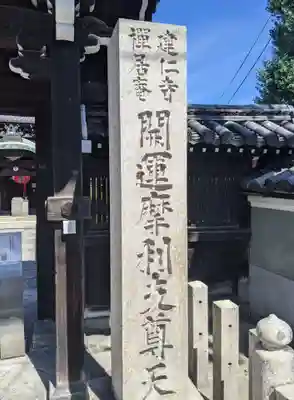 建仁寺
禅居庵
開運摩利支尊天